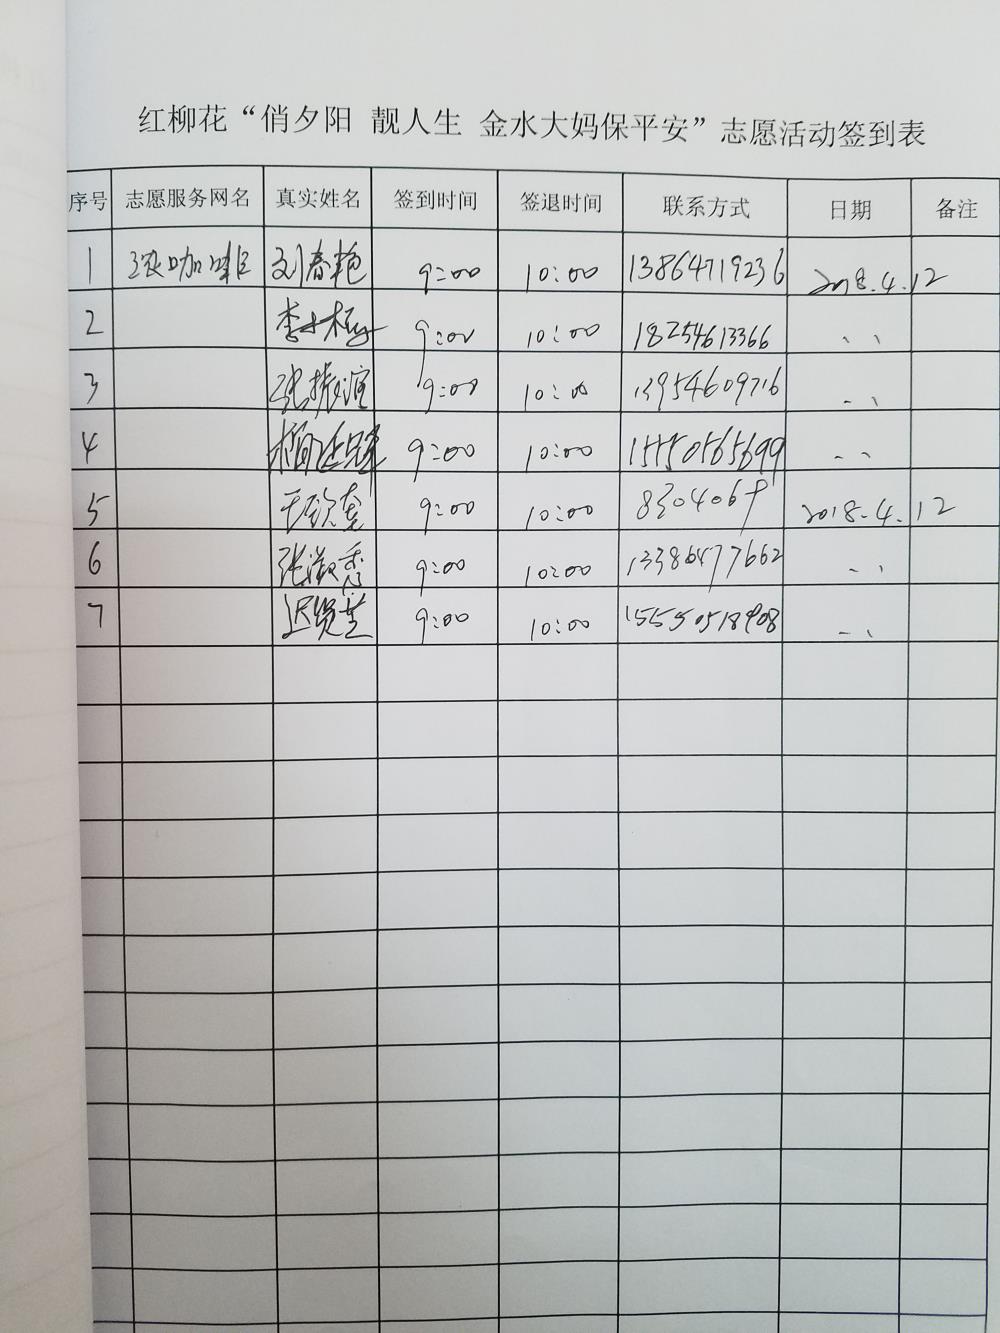 红柳花“俏夕阳 靓人生 金水大妈保平安”志愿活动签到表
序号 志愿服务网名 真实姓名 签到时间 签退时间 联系方式 日期 备注
1 浓咖啡 刘春艳 9:00 10:00 13864719236 2018.4.12
2 9:00 10:00 18254613366 、、
3 张振谊 9:00 10:00 13954609716 、、
4 9:00 10:00 15550565699 、、
5 9:00 10:00 8304069 2018.4.12
6 张淑香 9:00 10:00 13386477662 、、
7 迟贤芝 9:00 10:00 15550518908 、、